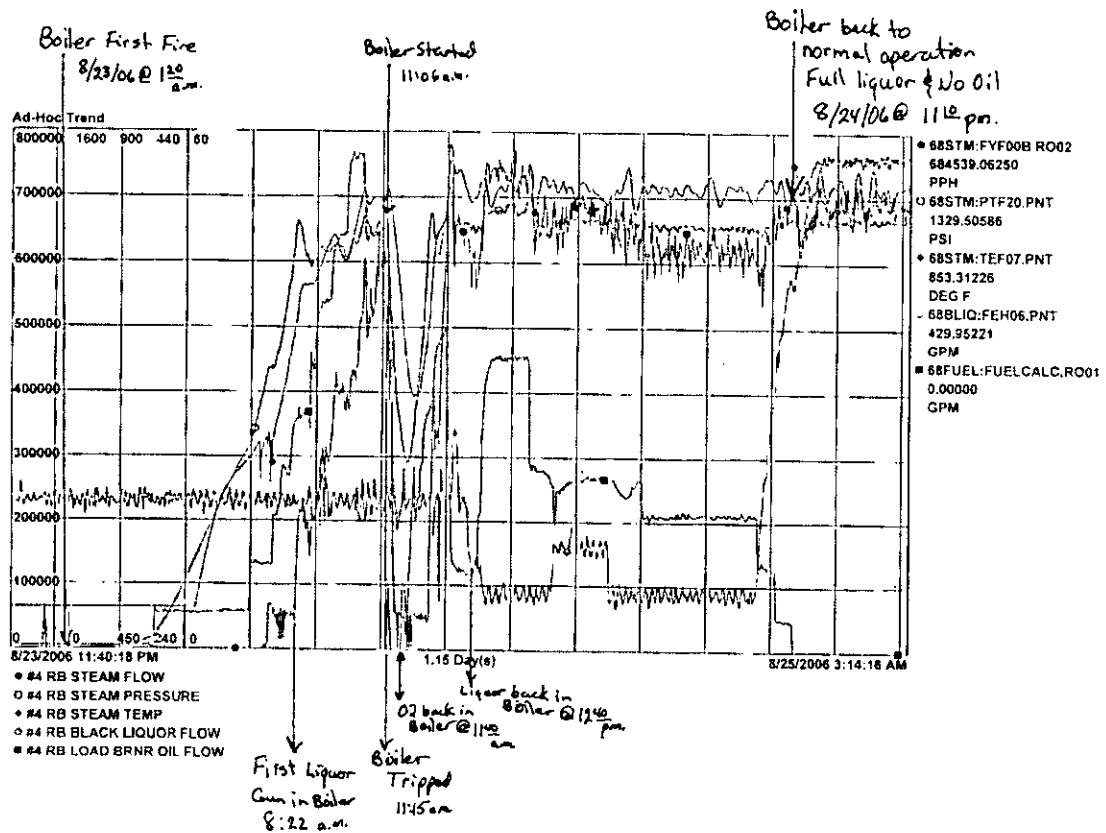 Boiler First Fire
8/23/06 @ 1 20
a.m.
Boiler Started
11:06 a.m.
Boiler back to
normal operation
Full liquor & No Oil
8/24/06 @ 11 10 pm.
Ad-Hoc Trend
800000 1600 900 440 60
700000
600000
500000
400000
300000
200000
100000
0 0 450 240 0
8/23/2006 11:40:18 PM
1.15 Day(s)
8/25/2006 3:14:16 AM
68STM:FYF00B RO02
684539.06250
PPH
68STM:PTF20.PNT
1329.50586
PSI
68STM:TEF07.PNT
853.31226
DEG F
68BLIQ:FEH06.PNT
429.95221
GPM
68FUEL:FUELCALC.RO01
0.00000
GPM
#4 RB STEAM FLOW
#4 RB STEAM PRESSURE
#4 RB STEAM TEMP
#4 RB BLACK LIQUOR FLOW
#4 RB LOAD BRNR OIL FLOW
First Liquor
Gun in Boiler
8:22 a.m.
Boiler
Tripped
11:15 am
back in
Boiler @ 11 40
am
Liquor back in
Boiler @ 12 40
pm.